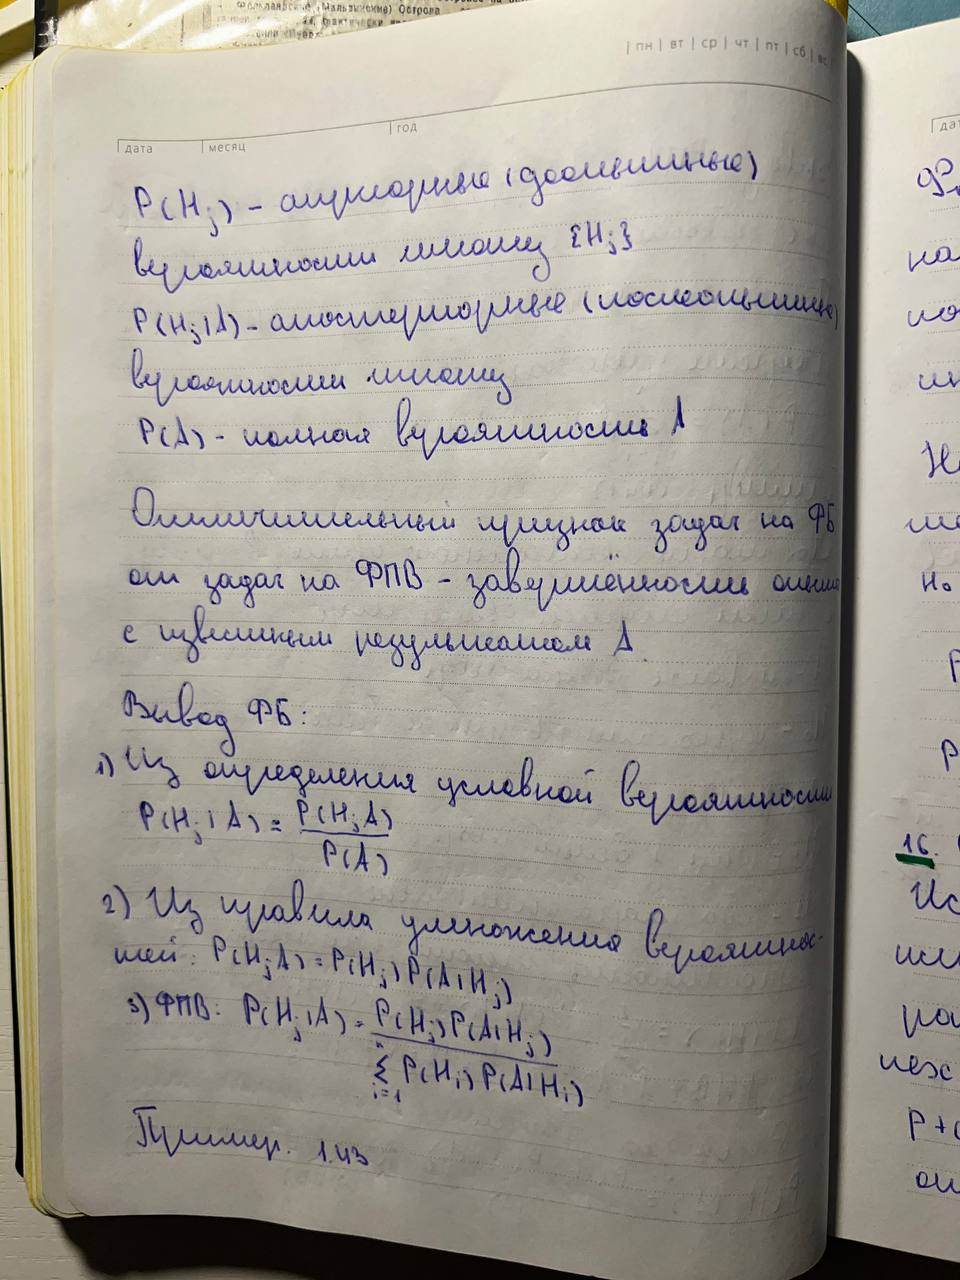 Фольклендские (Мальвинские) Острова
фактически
| пн | вт | ср | чт | пт | сб | вс
дата месяц год
P(Hj) - априорные (доопытные)
вероятности гипотез {Hj}
P(Hj|A) - апостериорные (послеопытные)
вероятности гипотез
P(A) - полная вероятность A
Отличительный признак задач на ФБ
от задач на ФПВ - завершённость опыта
с известным результатом A
Вывод ФБ:
1) Из определения условной вероятности
P(Hj|A) = P(HjA) / P(A)
2) Из правила умножения вероятнос-
тей: P(HjA) = P(Hj)P(A|Hj)
3) ФПВ: P(Hj|A) = P(Hj)P(A|Hj) / Σ i=1 n P(Hi)P(A|Hi)
Пример. 1.43
дат
на
по
Но
P
P
16.
Ис
ра
P+